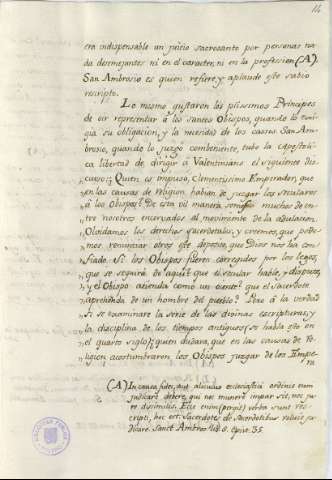 14
era indispensable un juicio sacrosanto por personas na
da desemejantes ni en el caracter, ni en la profession (A).
San Ambrosio es quien refiere, y aplaude este sabio
rescripto.
Lo mismo gustaron los piissimos Principes
de oir representar à los Santos Obispos, quando lo exi
gia su obligacion, y la necesidad de los casos. San Am-
brosio, quando lo juzgó conveniente, tubo la Apostoli
ca libertad de dirigir à Valentiniano el siguiente dis
curso: ¿Quien es impuso, Clementissimo Emperador, que
„ en las causas de religion habian de juzgar los seculares
„ à los Obispos? De esta vil manera somos muchos de en-
„ tre nosotros encorvados al movimiento de la adulacion.
„ Olvidamos los derechos sacerdotales, y creemos, que pode-
„ mos renunciar otros este deposito, que Dios nos ha con-
„ fiado. Si los Obispos fueren corregidos por los legos,
„ que se seguirá de aqui? que el secular hable, y dispute,
„ y el Obispo atienda como un oiente? que el sacerdote
„ aprehenda de un hombre del pueblo? Pero à la verdad
„ si se examinare la serie de las divinas escripturas, y
„ la disciplina de los tiempos antiguos (se habla esto en
„ el quarto siglo) ¿quien dudara, que en las causas de re-
„ ligion acostumbraron los Obispos juzgar de los Empe-
ra
(A) In causa fidei, aut alicuius ecclesiastici ordinis eum
judicare debere, qui nec munere impar sit, nec ju
re dissimilis. Ecce enim (pergit) verba sunt res-
cripti, hoc est Sacerdotes de Sacerdotibus voluit ju
dicare. Sanct Ambros. lib. 8. Epist. 35.